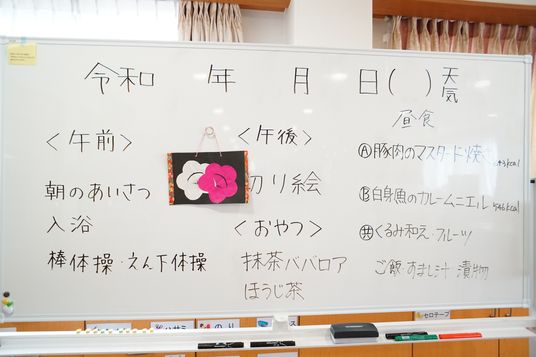 令和 年 月 日( ) 天気
<午前>
朝のあいさつ
入浴
棒体操・えん下体操
<午後>
切り絵
<おやつ>
抹茶ババロア
ほうじ茶
昼食
Ⓐ豚肉のマスタード焼
Ⓑ白身魚のカレームニエル 546kcal
㊓くるみ和え・フルーツ
ご飯・すまし汁 漬物
ハサミ
のり
セロテープ